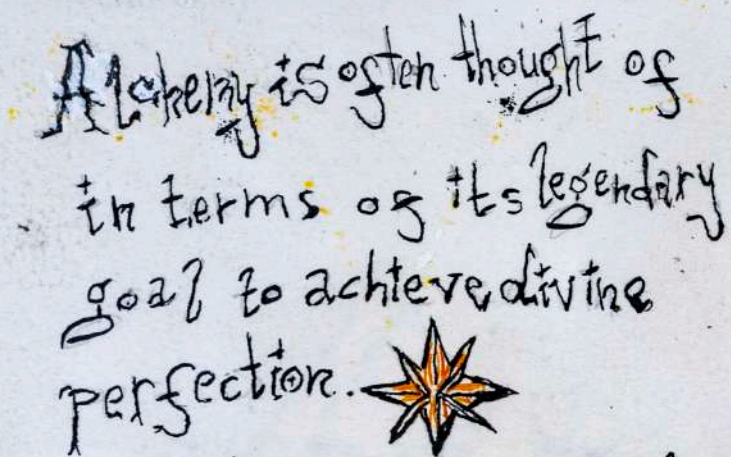 Alchemy is often thought of
in terms of its legendary
goal to achieve divine
perfection.